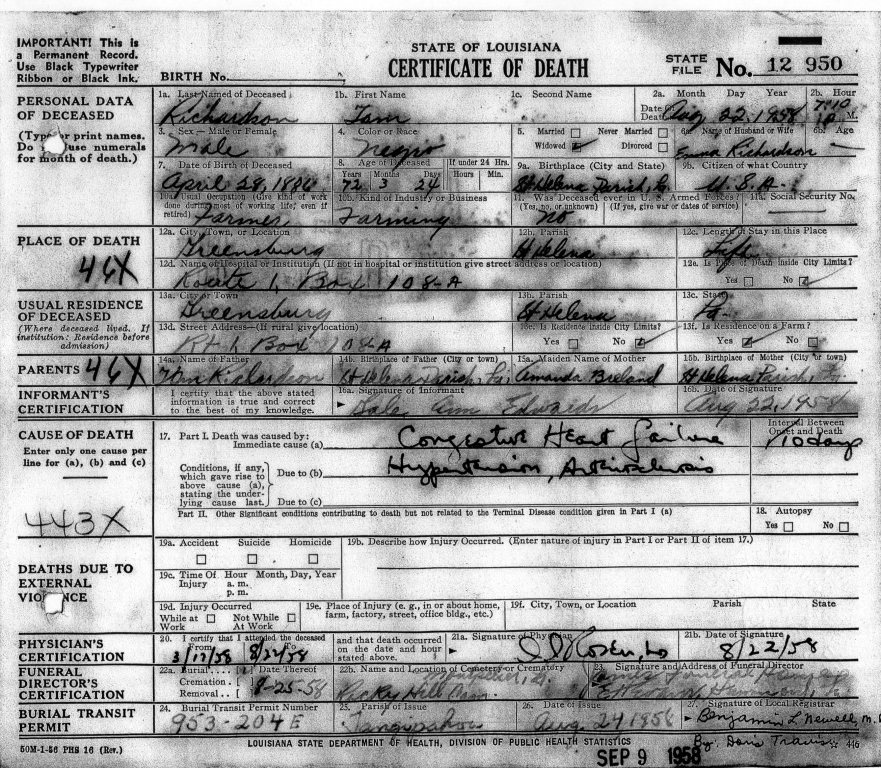 IMPORTANT! This is
a Permanent Record.
Use Black Typewriter
Ribbon or Black Ink.
STATE OF LOUISIANA
CERTIFICATE OF DEATH
BIRTH No.
STATE
FILE No. 12 950
PERSONAL DATA
OF DECEASED
(Type or print names.
Do use numerals
for month of death.)
1a. Last Name of Deceased 1b. First Name 1c. Second Name 2a. Month Day Year 2b. Hour
Richardson Tam Date of Death Aug 22, 1958 7:10 M.
3. Sex — Male or Female 4. Color or Race 5. Married Never Married 6a. Name of Husband or Wife 6b. Age
Male negro Widowed Divorced Emma Richardson
7. Date of Birth of Deceased 8. Age of Deceased If under 24 Hrs. 9a. Birthplace (City and State) 9b. Citizen of what Country
Years Months Days Hours Min.
April 28, 1886 72 3 24 St Helena Parish, La. U.S.A.
10a. Usual Occupation (Give kind of work 10b. Kind of Industry or Business 11. Was Deceased ever in U. S. Armed Forces? 11a. Social Security No.
done during most of working life, even if (Yes, no, or unknown) (If yes, give war or dates of service)
retired) Farmer Farming no
PLACE OF DEATH
46X
12a. City, Town, or Location 12b. Parish 12c. Length of Stay in this Place
Greensburg St Helena Life
12d. Name of Hospital or Institution (If not in hospital or institution give street address or location) 12e. Is Place of Death inside City Limits?
Route 1, Box 108-A Yes No
USUAL RESIDENCE
OF DECEASED
(Where deceased lived. If
institution: Residence before
admission)
13a. City or Town 13b. Parish 13c. State
Greensburg St Helena La.
13d. Street Address—(If rural give location) 13e. Is Residence inside City Limits? 13f. Is Residence on a Farm?
Rt 1, Box 108A Yes No Yes No
PARENTS 46X
14a. Name of Father 14b. Birthplace of Father (City or town) 15a. Maiden Name of Mother 15b. Birthplace of Mother (City or town)
Wm Richardson St Helena Parish, La. Amanda Breland St Helena Parish, La.
INFORMANT'S
CERTIFICATION
I certify that the above stated
information is true and correct
to the best of my knowledge.
16a. Signature of Informant 16b. Date of Signature
Ann Edwards Aug 22, 1958
CAUSE OF DEATH
Enter only one cause per
line for (a), (b) and (c)
443X
17. Part I. Death was caused by: Interval Between
Onset and Death
Immediate cause (a) Congestive Heart failure 10 days
Conditions, if any,
which gave rise to
above cause (a),
stating the under-
lying cause last.
Due to (b) Hypertension, Arteriosclerosis
Due to (c)
Part II. Other Significant conditions contributing to death but not related to the Terminal Disease condition given in Part I (a)
18. Autopsy
Yes No
DEATHS DUE TO
EXTERNAL
VIOLENCE
19a. Accident Suicide Homicide 19b. Describe how Injury Occurred. (Enter nature of injury in Part I or Part II of item 17.)
19c. Time Of Hour Month, Day, Year
Injury a. m.
p. m.
19d. Injury Occurred 19e. Place of Injury (e. g., in or about home, 19f. City, Town, or Location Parish State
While at Not While farm, factory, street, office bldg., etc.)
Work At Work
PHYSICIAN'S
CERTIFICATION
20. I certify that I attended the deceased
From To
3/17/58 8/22/58
and that death occurred
on the date and hour
stated above.
21a. Signature of Physician 21b. Date of Signature
8/22/58
FUNERAL
DIRECTOR'S
CERTIFICATION
22a. Burial Date Thereof 22b. Name and Location of Cemetery or Crematory 23. Signature and Address of Funeral Director
Cremation
Removal
8-25-58 Funeral Home
BURIAL TRANSIT
PERMIT
24. Burial Transit Permit Number 25. Parish of Issue 26. Date of Issue 27. Signature of Local Registrar
953-204E Tangipahoa Aug. 24 1958 Benjamin L Newell, M.D.
By: Doris Travis
50M-1-56 PHS 16 (Rev.) LOUISIANA STATE DEPARTMENT OF HEALTH, DIVISION OF PUBLIC HEALTH STATISTICS 446
SEP 9 1958